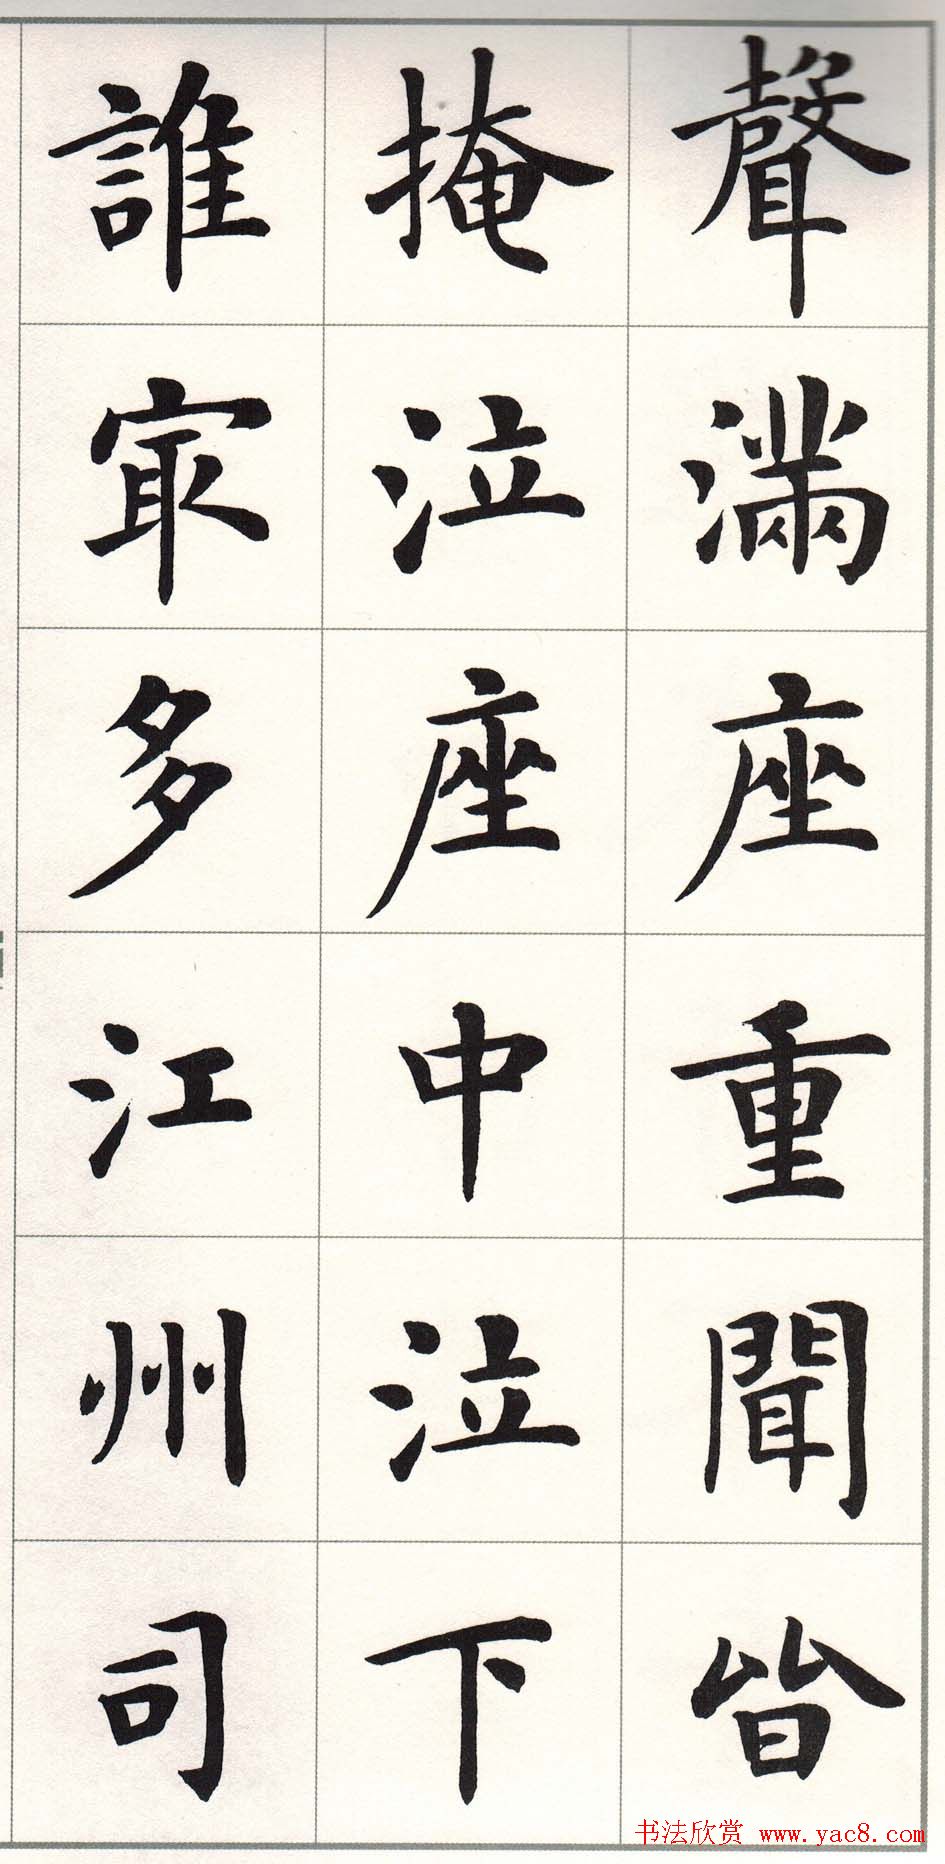 聲滿座重聞皆
掩泣座中泣下
誰冣多江州司
书法欣赏 www.yac8.com